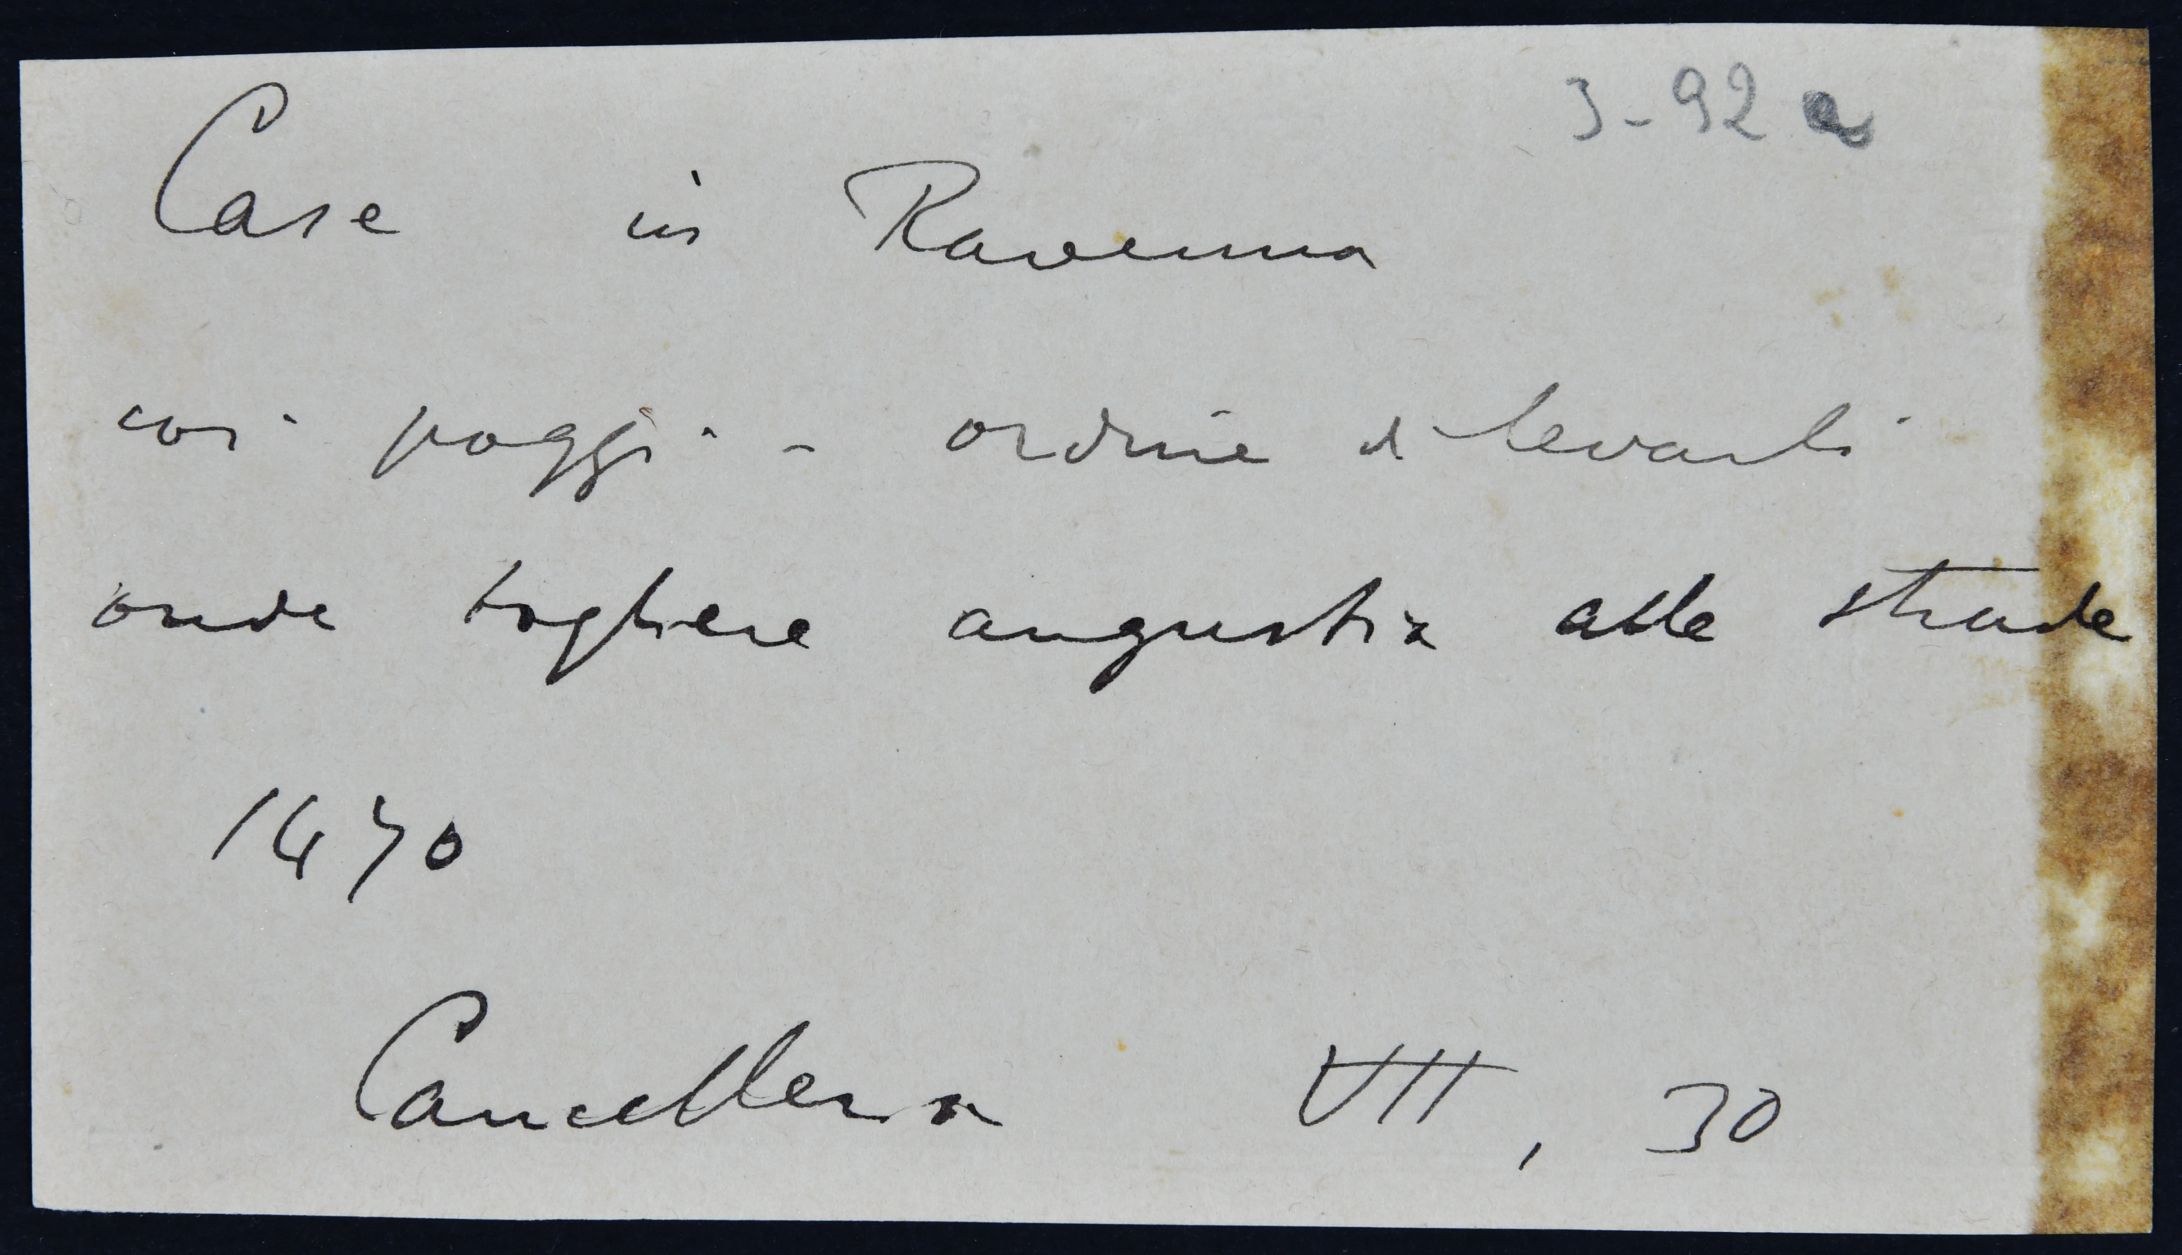 3-92 a
Case in Ravenna
coi poggi - ordine di levarli
onde togliere angustia alle strade
1470
Cancelleria VII, 30